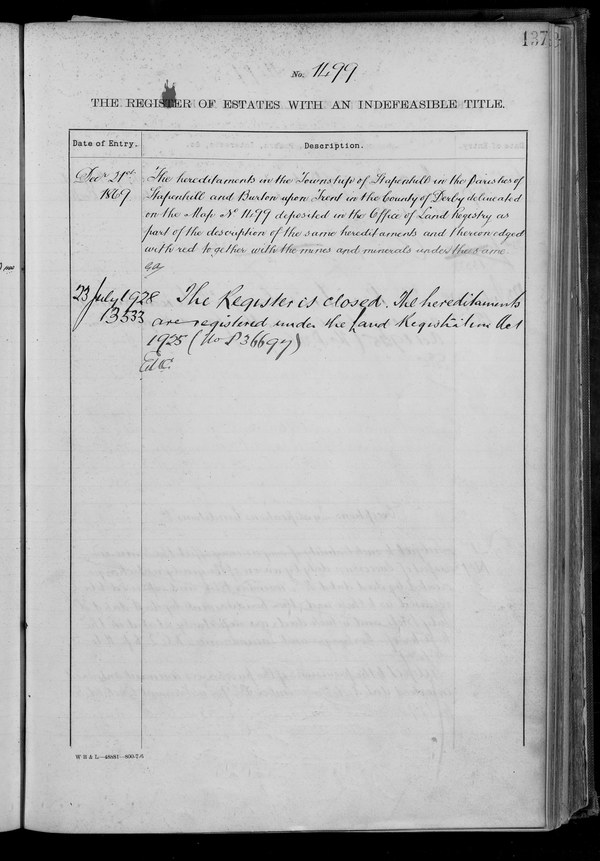 1378
No. 1499
THE REGISTER OF ESTATES WITH AN INDEFEASIBLE TITLE.
Date of Entry.
Description.
Decr 21st
1869
The hereditaments in the Township of Stapenhill in the Parishes of
Stapenhill and Burton upon Trent in the County of Derby delineated
on the Map No 1499 deposited in the Office of Land Registry as
part of the description of the same hereditaments and thereon edged
with red together with the mines and minerals under the same.
23 July 1928
13533
The Register is closed. The hereditaments
are registered under the Land Registration Act
1925 (No P36697)
W B & L.—48881—800-7-5